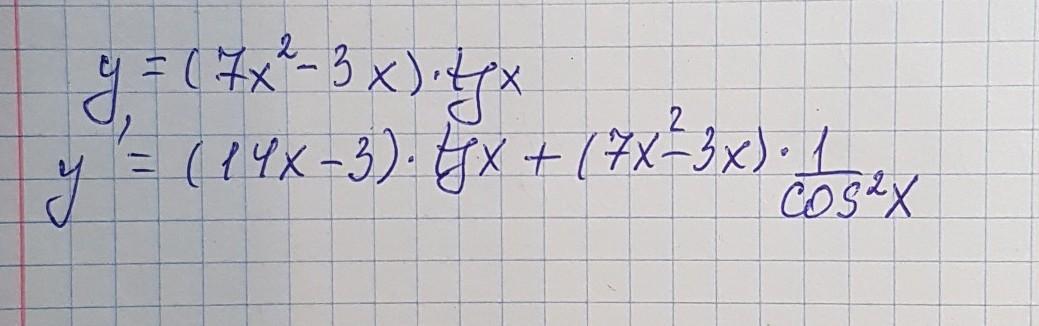 y = (7x² - 3x) · tg x
y' = (14x - 3) · tg x + (7x² - 3x) · 1/cos²x